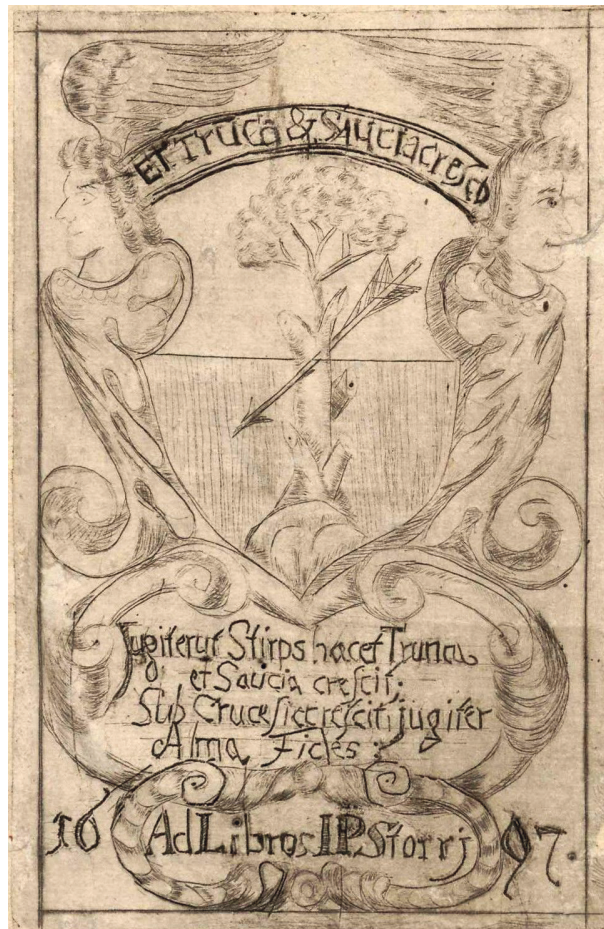 Et Trucā & Saucia cresco
Jugiter ut Stirps hæc et Trunca
et Saucia crescit;
Sub Cruce sic crescit jugiter
Alma Fides:
16 Ad Libros IP Storrj 97.